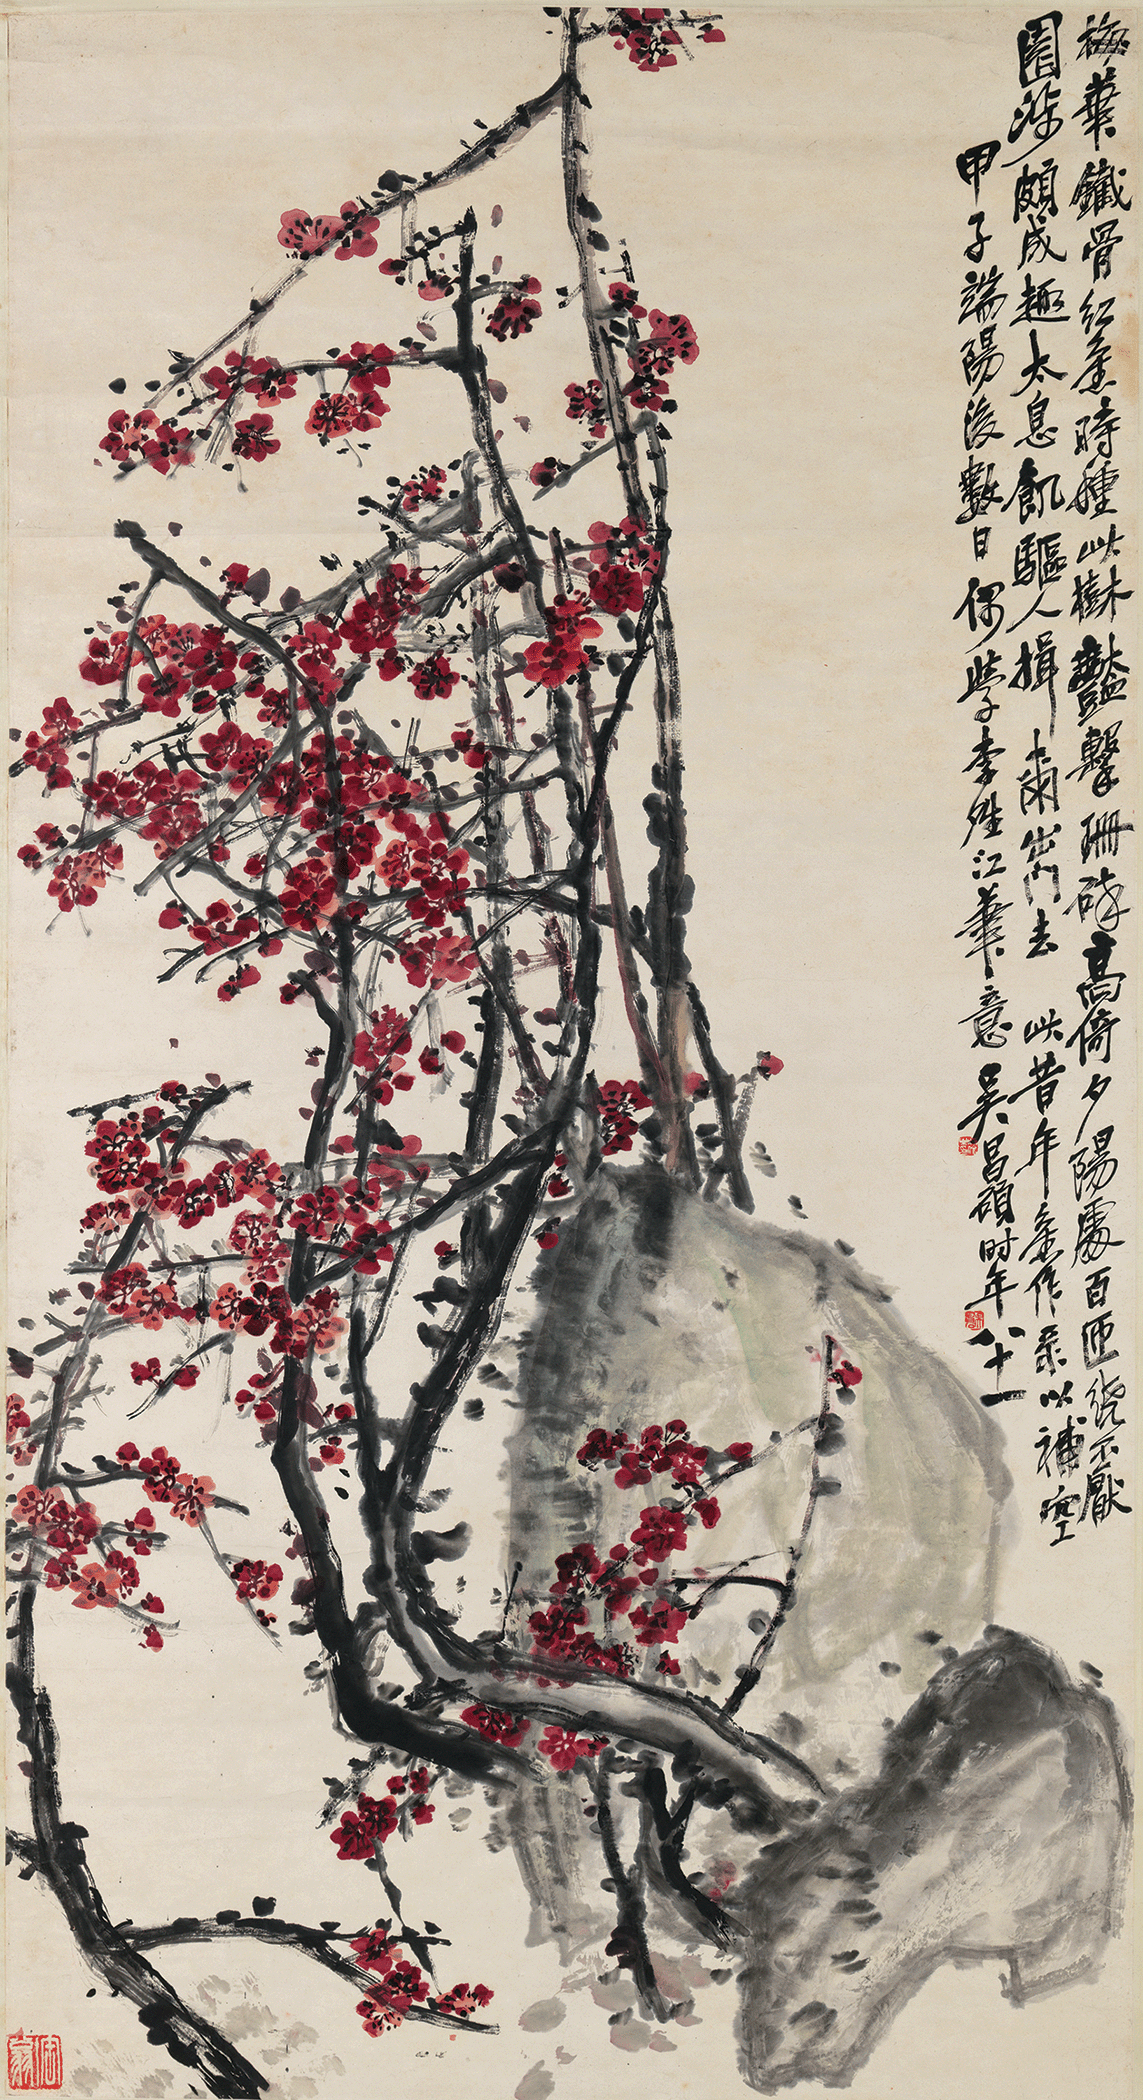 梅華鐵骨紅舊時種此樹豔擊珊碎高倚夕陽處百匝繞不厭
園涉頗成趣太息飢驅人揖爾出門去 此昔年舊作录以補空
甲子端陽後數日偶學李晴江筆意吳昌碩时年八十一